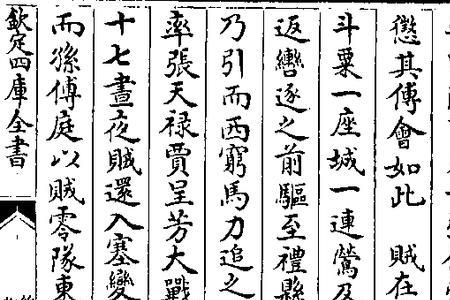 懲其傅會如此　賊在
斗粟一座城一連鶯及
返轡逐之前驅至禮縣
乃引而西窮馬力追之
率張天禄賈呈芳大戰
十七晝夜賊還入塞變
而孫傅庭以賊零隊東
欽定四庫全書